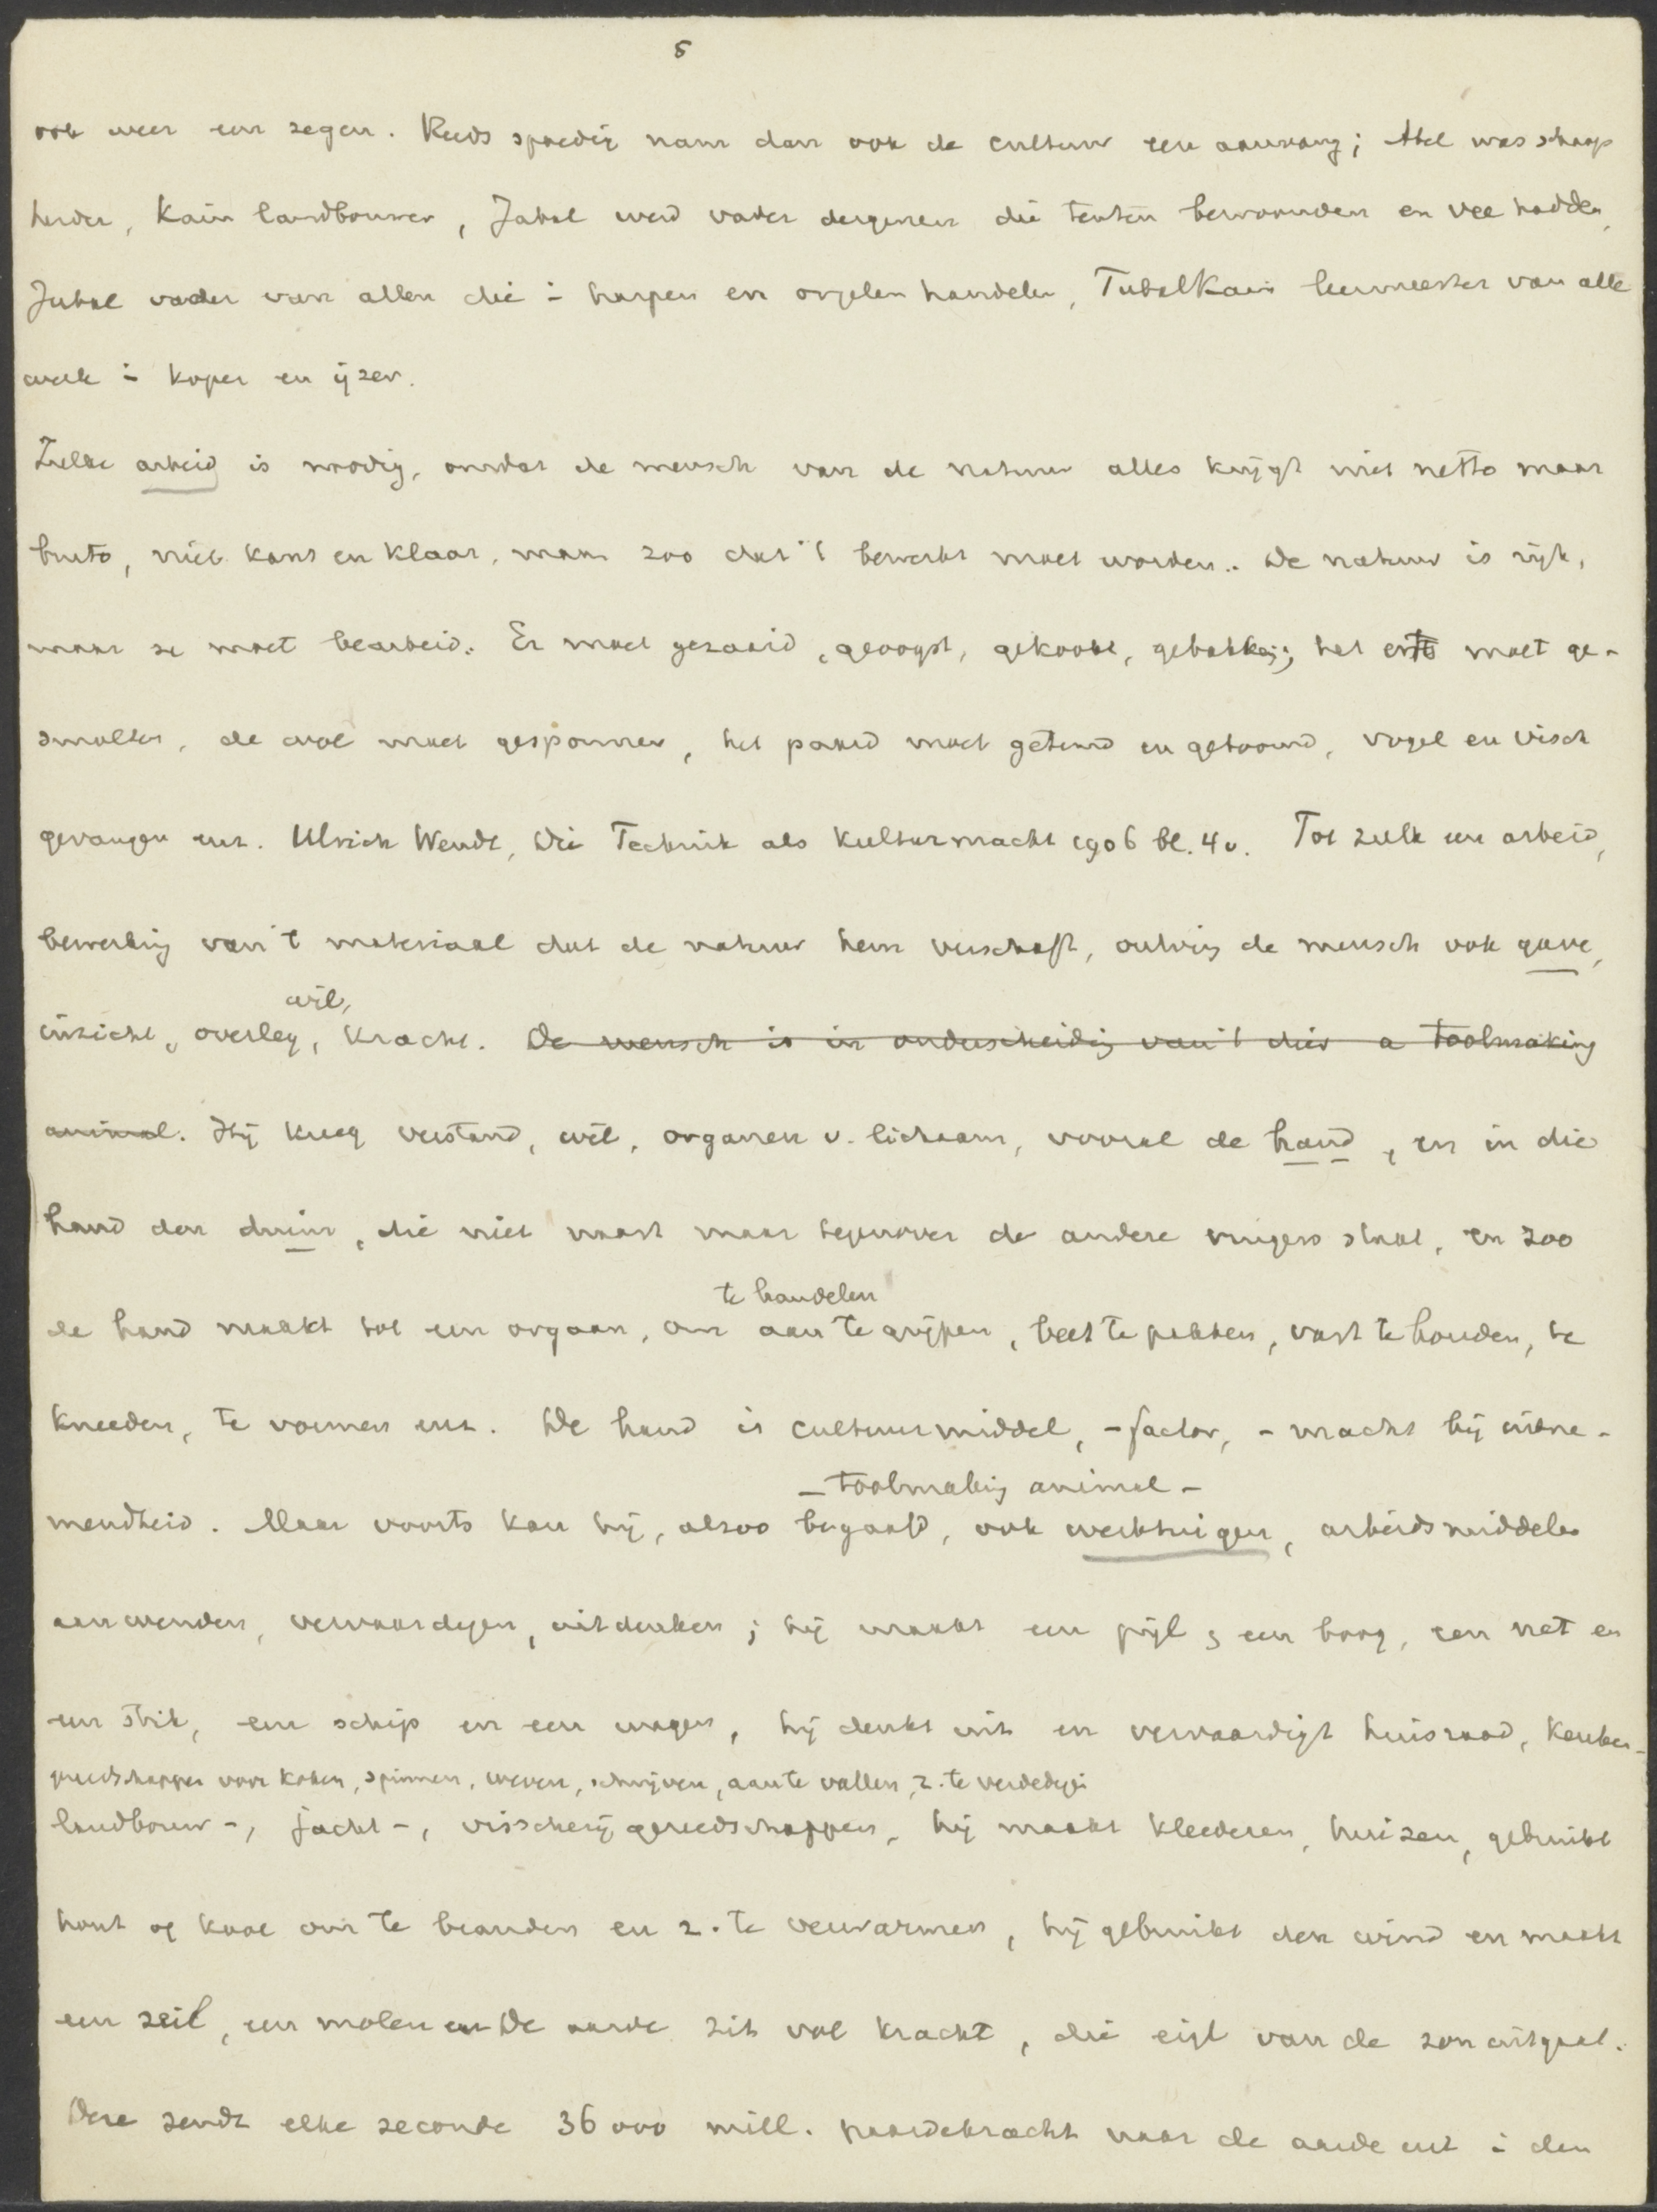 5
ook weer een zegen. Reeds spoedig nam dan ook de cultuur een aanvang; Abel was schaap
herder, Kain landbouwer, Jabal werd vader dergenen die tenten bewoonden en vee hadden,
Jubal vader van allen die in harpen en orgelen handelen, Tubalkain leermeester van alle
werk in koper en ijzer.
Zulke arbeid is noodig, omdat de mensch van de natuur alles krijgt niet netto maar
bruto, niet kant en klaar, maar zoo dat 't bewerkt moet worden. De natuur is rijk,
maar ze moet bearbeid. Er moet gezaaid, geoogst, gekookt, gebakken; het erts moet ge-
smolten, de wol moet gesponnen, het paard moet getemd en getoomd, vogel en visch
gevangen enz. Ulrich Wendt, Die Technik als Kulturmacht 1906 bl. 4v. Tot zulk een arbeid,
bewerking van 't materiaal dat de natuur hem verschaft, ontving de mensch ook gave,
wil,
inzicht, overleg, kracht. De mensch is in onderscheiding van 't dier a toolmaking
animal. Hij kreeg verstand, wil, organen v. lichaam, vooral de hand, en in die
hand den duim, die niet naast maar tegenover de andere vingers staat, en zoo
te handelen
de hand maakt tot een orgaan, om aan te grijpen, beet te pakken, vast te houden, te
kneeden, te vormen enz. De hand is cultuurmiddel, -factor, -macht bij uitne-
- toolmaking animal -
mendheid. Maar voorts kan hij, alzoo begaafd, ook werktuigen, arbeidsmiddelen
aanwenden, vervaardigen, uitdenken; hij maakt een pijl, een boog, een net en
een strik, een schip en een wagen, hij denkt uit en vervaardigt huisraad, keuken-
gereedschappen voor koken, spinnen, weven, schrijven, aan te vallen, z. te verdedigen
landbouw-, jacht-, visscherijgereedschappen, hij maakt kleederen, huizen, gebruikt
hout of kool om te branden en z. te verwarmen, hij gebruikt den wind en maakt
een zeil, een molen en De aarde zit vol kracht, die eigl van de zon uitgaat.
Deze zendt elke seconde 36000 mill. paardekracht naar de aarde uit in den